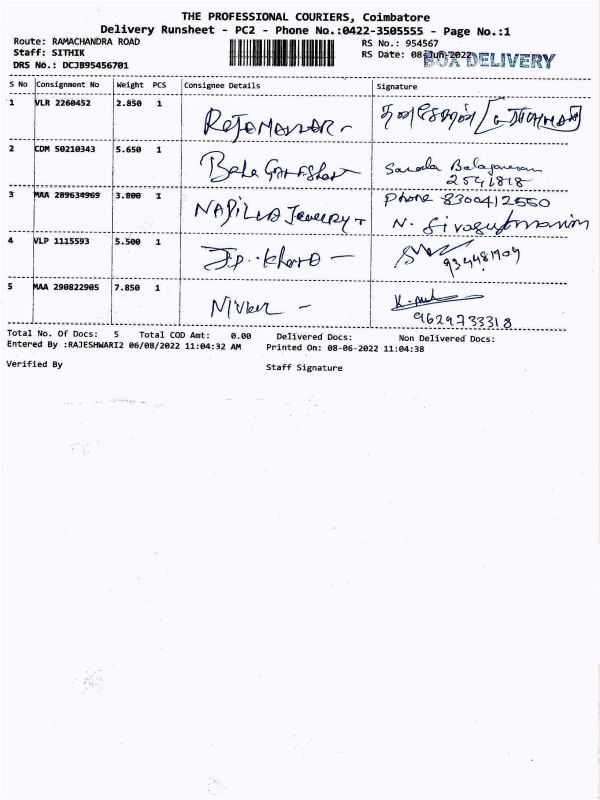 THE PROFESSIONAL COURIERS, Coimbatore
Delivery Runsheet - PC2 - Phone No.:0422-3505555 - Page No.:1
Route: RAMACHANDRA ROAD
RS No.: 954567
Staff: SITHIK
RS Date: 08-Jun-2022
BOX DELIVERY
DRS No.: DCJB95456701
S No Consignment No Weight PCS Consignee Details Signature
1 VLR 2260452 2.850 1
2 CDM 50210343 5.650 1
Sarala Balaganesan
2541818
3 MAA 289634969 3.800 1 Jewelry
Phone 8300412550
4 VLP 1115593 5.500 1
5 MAA 290822905 7.850 1
9629733318
Total No. Of Docs: 5 Total COD Amt: 0.00 Delivered Docs: Non Delivered Docs:
Entered By :RAJESHWARI2 06/08/2022 11:04:32 AM Printed On: 08-06-2022 11:04:38
Verified By
Staff Signature